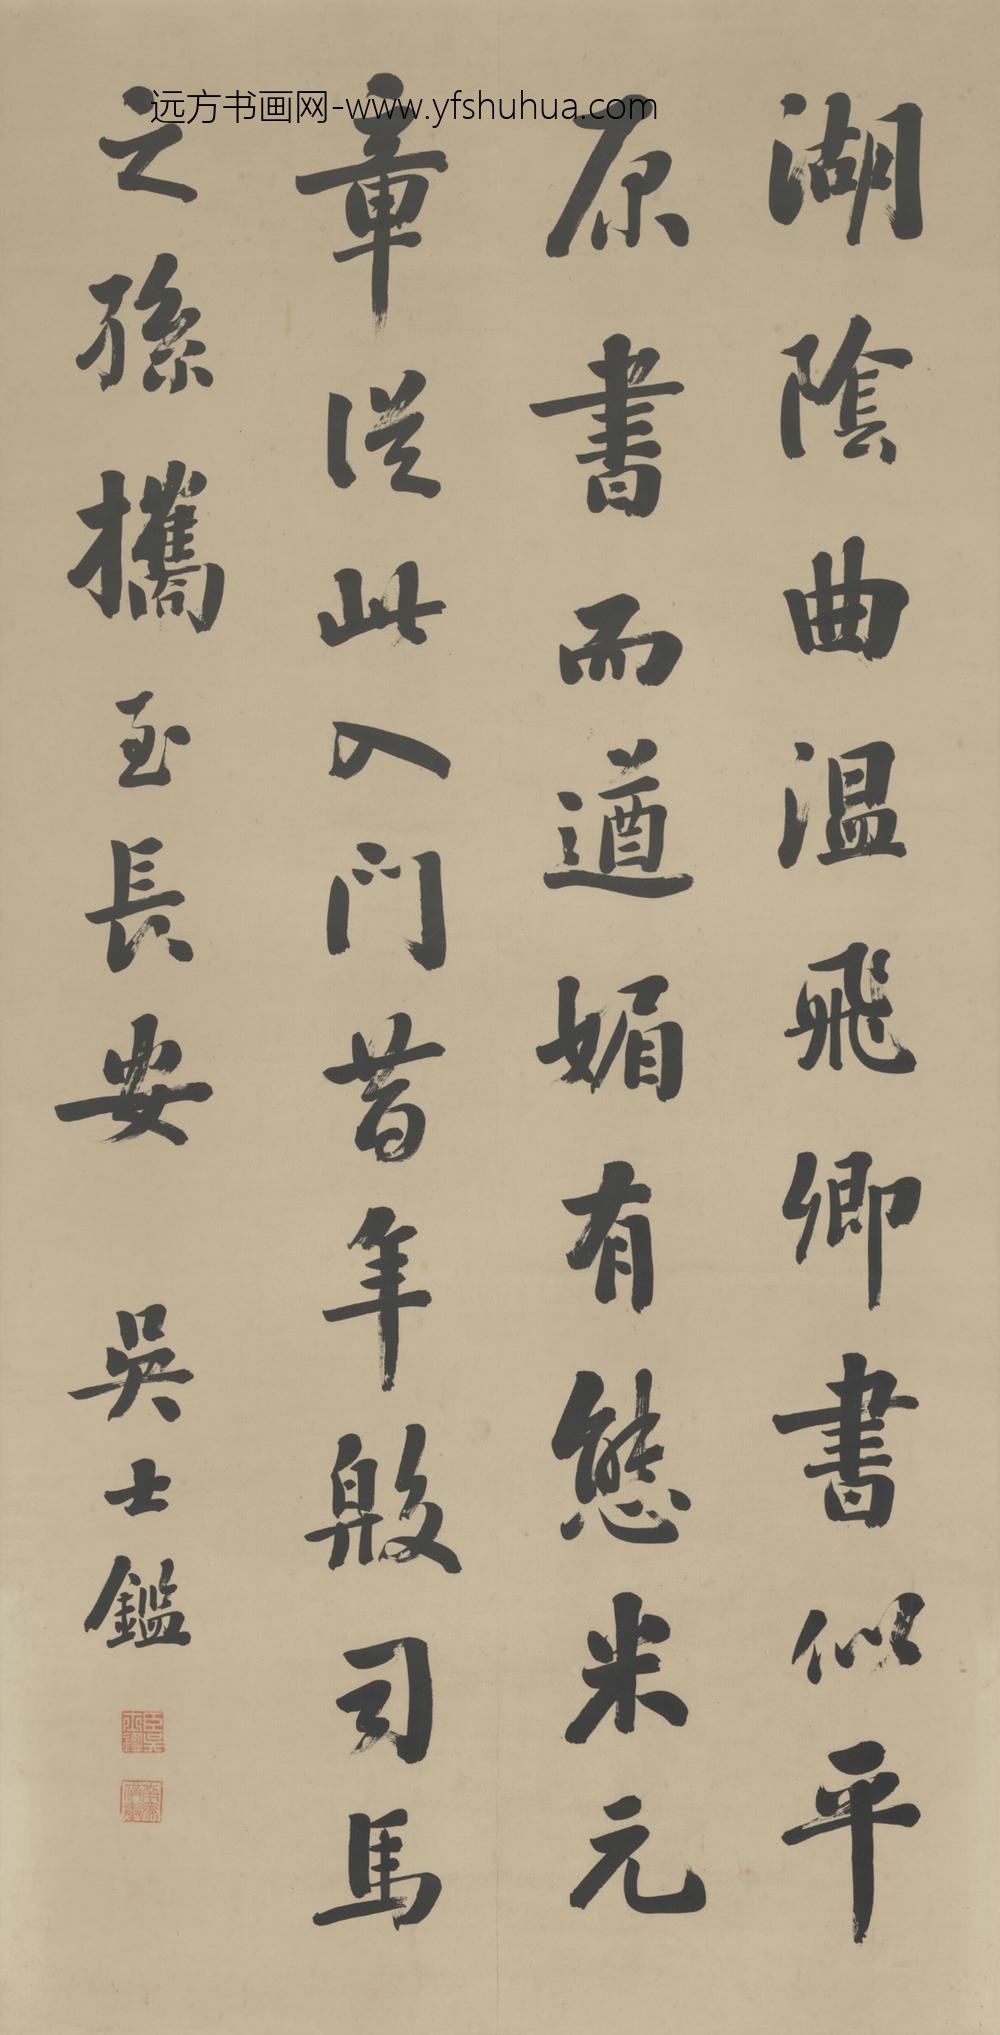 远方书画网-www.yfshuhua.com
湖陰曲温飛卿書似平
原書而遒媚有態米元
章從此入門昔年殷司馬
之孫攜至長安 吳士鑑